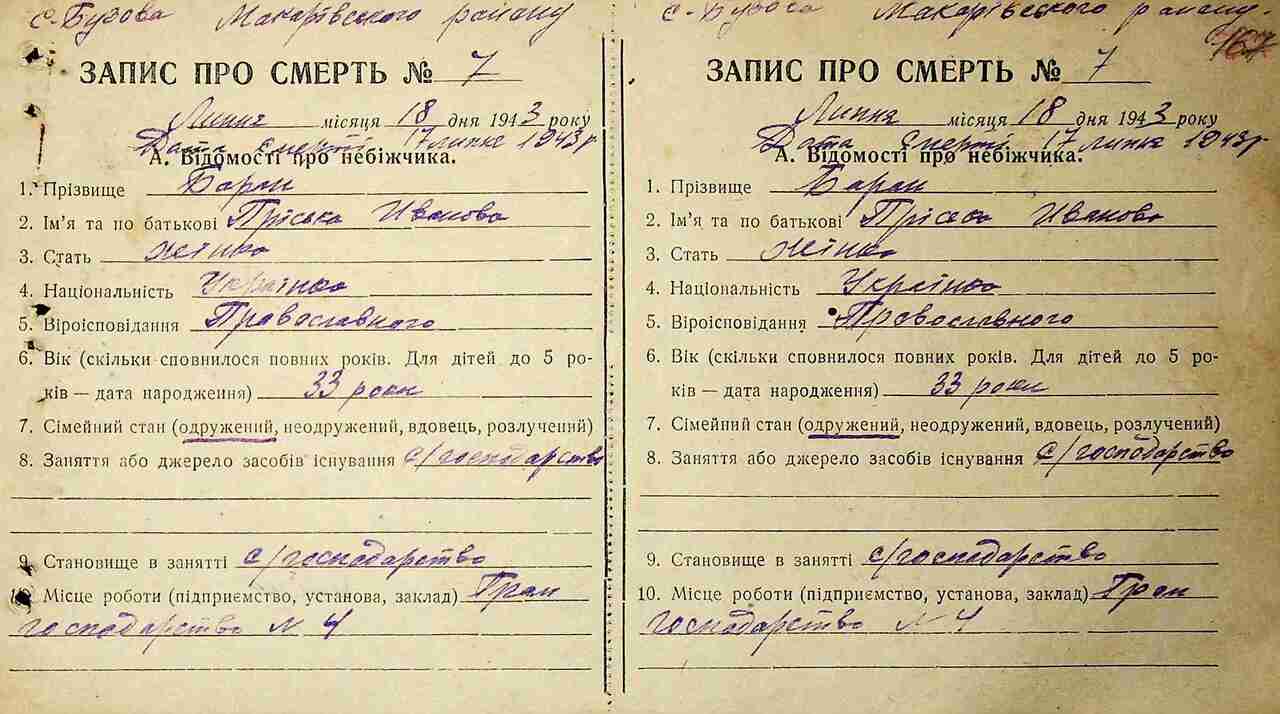 с. Бузова Макарівського району
ЗАПИС ПРО СМЕРТЬ № 7
Липня місяця 18 дня 1943 року
Дата Смерті 17 липня 1943 р
А. Відомості про небіжчика.
1. Прізвище Баран
2. Ім'я та по батькові Пріська Иванова
3. Стать жінка
4. Національність Українка
5. Віроісповідання Православного
6. Вік (скільки сповнилося повних років. Для дітей до 5 ро-
ків — дата народження) 33 роки
7. Сімейний стан (одружений, неодружений, вдовець, розлучений)
8. Заняття або джерело засобів існування с/господарство
9. Становище в занятті с/господарство
10. Місце роботи (підприємство, установа, заклад) Гром
господарство № 4
с. Бузова Макарівського району.
167
ЗАПИС ПРО СМЕРТЬ № 7
Липня місяця 18 дня 1943 року
Дата Смерті 17 липня 1943 р
А. Відомості про небіжчика.
1. Прізвище Баран
2. Ім'я та по батькові Пріська Иванова
3. Стать жінка
4. Національність Українка
5. Віроісповідання Православного
6. Вік (скільки сповнилося повних років. Для дітей до 5 ро-
ків — дата народження) 33 роки
7. Сімейний стан (одружений, неодружений, вдовець, розлучений)
8. Заняття або джерело засобів існування с/господарство
9. Становище в занятті с/господарство
10. Місце роботи (підприємство, установа, заклад) Гром
господарство № 4